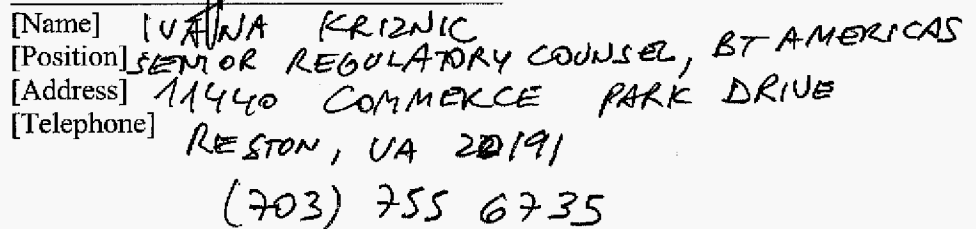 [Name] IVANA KRIZNIC
[Position] SENIOR REGULATORY COUNSEL, BT AMERICAS
[Address] 11440 COMMERCE PARK DRIVE
[Telephone]
RESTON, VA 20191
(703) 755 6735